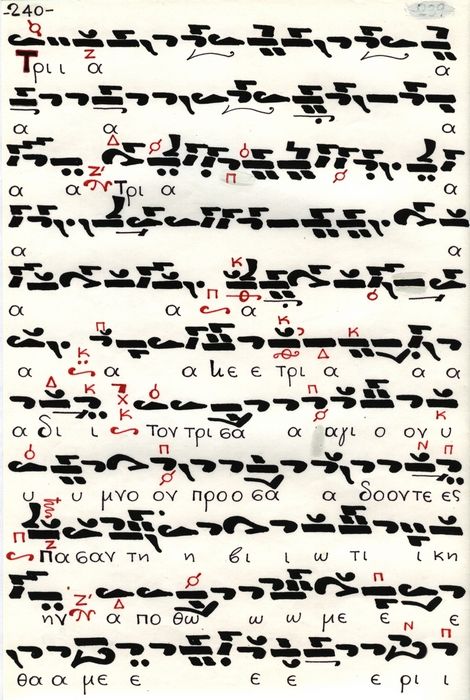 -240-
239
Τρι ι α α
α α α
α α Τρι α α
α α
α α α
α α α κε ε τρι α α α
α δι ι τον τρι σα α αγι ο ον υ
υ υ μνο ον προ ο σα α δοον τε ες
Πασαν τη η βι ι ω τι ι κη
ην α πο θω ω ω με ε ε
θα α με ε ε ε ε ρι ι